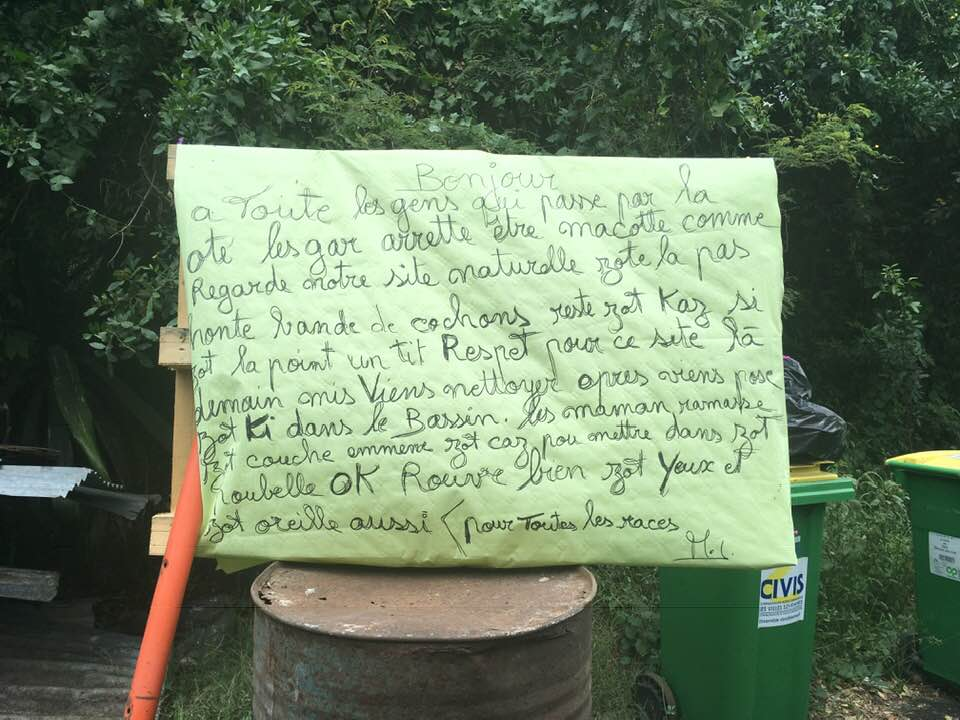 Bonjour
a Toute les gens qui passe par la
oté les gar arrette être macotte comme
Regarde notre site naturelle zote la pas
honte bande de cochons reste zot Kaz si
zot la point un tit Respet pour ce site là
demain mis Viens nettoyer apres viens pose
zot Ki dans le Bassin. les maman ramasse
zot couche emmene zot caz pou mettre dans zot
Poubelle OK Rouvre bien zot Yeux et
zot oreille aussi (pour Toutes les races
M.C.
CIVIS
LES VILLES SOLIDAIRES